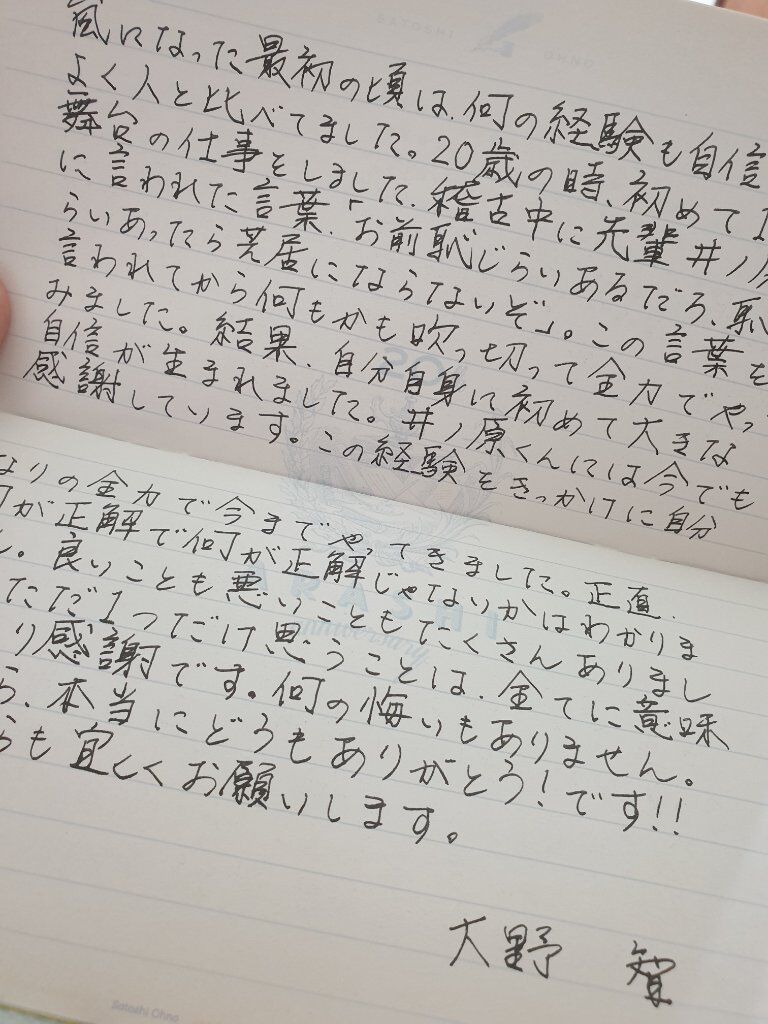 SATOSHI OHNO
嵐になった最初の頃は、何の経験も自信
よく人と比べてました。20歳の時、初めて1
舞台の仕事をしました。稽古中に先輩井ノ原
に言われた言葉、「お前恥じらいあるだろ、恥
らいあったら芝居にならないぞ」。この言葉を
言われてから何もかも吹っ切って全力でやって
みました。結果、自分自身に初めて大きな
自信が生まれました。井ノ原くんには今でも
感謝しています。この経験をきっかけに自分
なりの全力で今までやってきました。正直、
何が正解で何が正解じゃないかはわかりま
ん。良いことも悪いこともたくさんありまし
ただ1つだけ思うことは、全てに意味
り感謝です。何の悔いもありません。
ら、本当にどうもありがとう!です!!
らも宜しくお願いします。
ARASHI
anniversary
大野 智
Satoshi Ohno